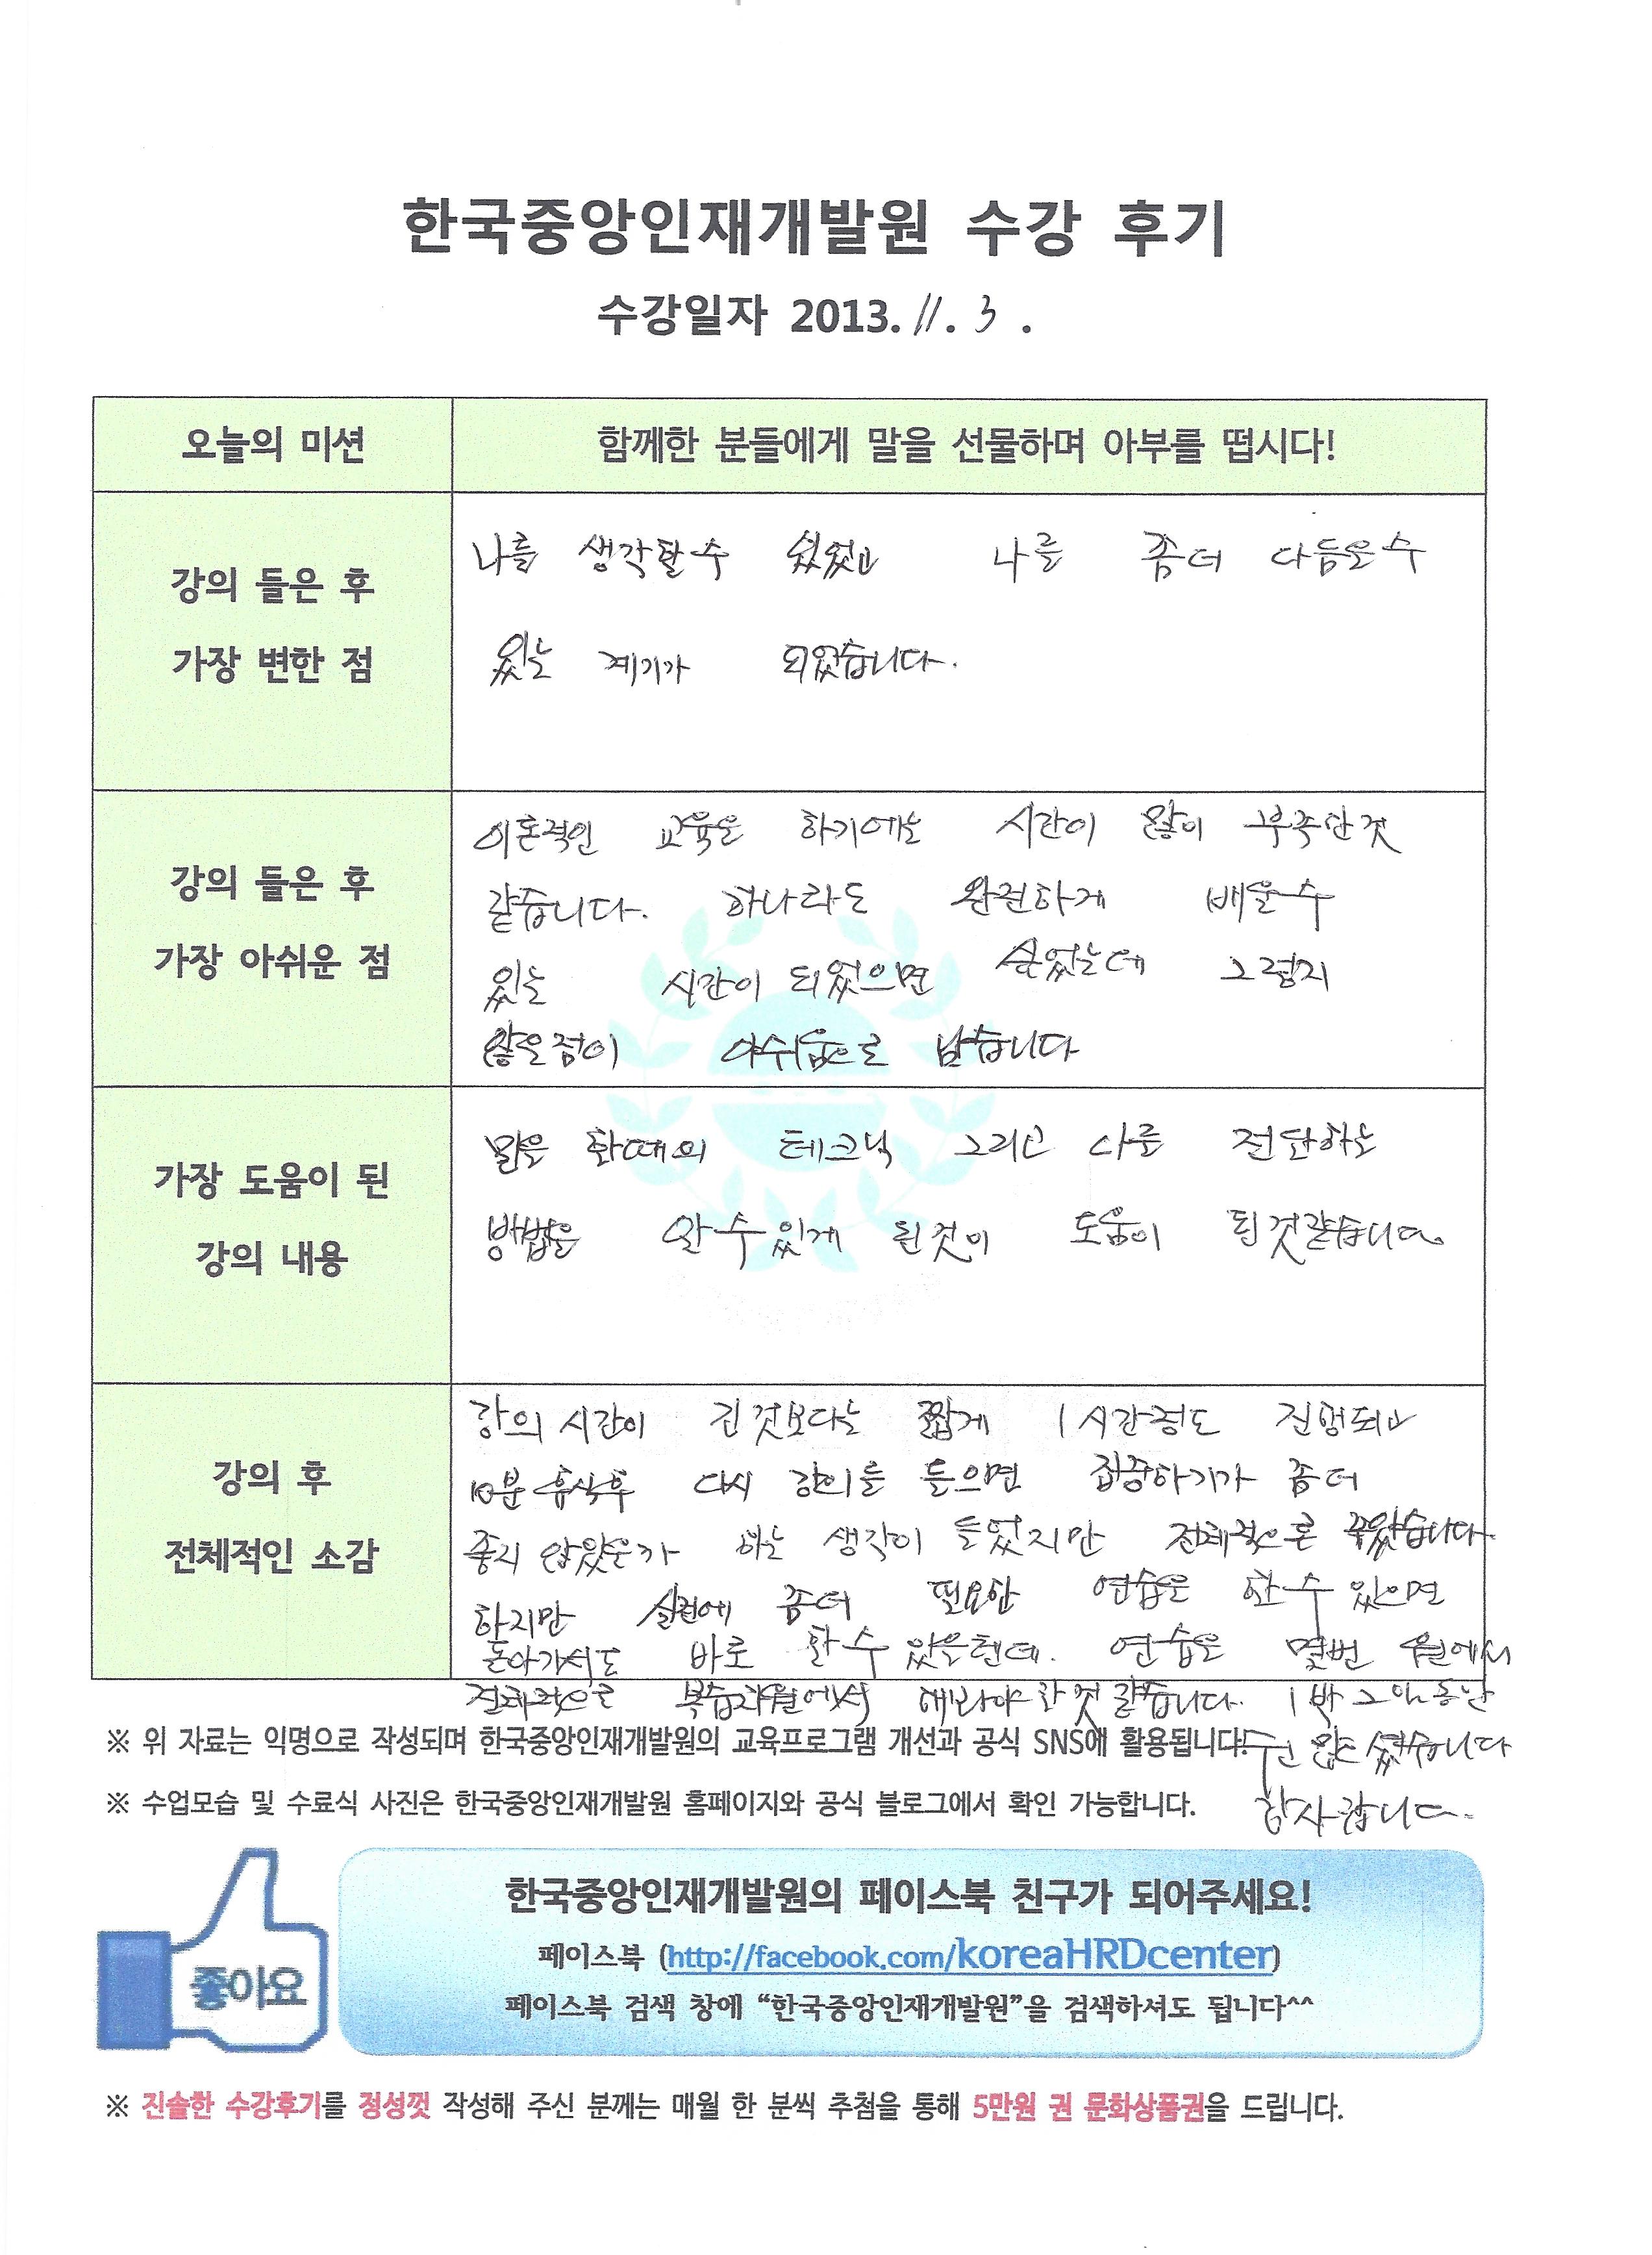 한국중앙인재개발원 수강 후기
수강일자 2013. 11. 3 .
오늘의 미션
함께한 분들에게 말을 선물하며 아부를 떱시다!
강의 들은 후
가장 변한 점
나를 생각할수 있었고 나를 좀더 다듬을수
있는 계기가 되었습니다.
강의 들은 후
가장 아쉬운 점
이론적인 교육은 하기에는 시간이 많이 부족한것
같습니다. 하나라도 완전하게 배울수
있는 시간이 되었으면 싶었는데 그렇지
않은점이 아쉬움으로 남습니다
가장 도움이 된
강의 내용
말을 할때의 테크닉 그리고 나를 전달하는
방법을 알수있게 된것이 도움이 된것같습니다.
강의 후
전체적인 소감
강의 시간이 긴것보다는 짧게 1시간정도 진행되고
10분 휴식후 다시 강의를 들으면 집중하기가 좀더
좋지 않았을가 하는 생각이 들었지만 전체적으론 좋았습니다.
하지만 실전에 좀더 필요한 연습을 할수 있으면
돌아가서도 바로 할수 있을텐데. 연습은 몇번
복습차원에서 해봐야 할것 같습니다. 1박2일 동안
감사합니다.
※ 위 자료는 익명으로 작성되며 한국중앙인재개발원의 교육프로그램 개선과 공식 SNS에 활용됩니다.
※ 수업모습 및 수료식 사진은 한국중앙인재개발원 홈페이지와 공식 블로그에서 확인 가능합니다.
좋아요
한국중앙인재개발원의 페이스북 친구가 되어주세요!
페이스북 (http://facebook.com/koreaHRDcenter)
페이스북 검색 창에 “한국중앙인재개발원”을 검색하셔도 됩니다^^
※ 진솔한 수강후기를 정성껏 작성해 주신 분께는 매월 한 분씩 추첨을 통해 5만원 권 문화상품권을 드립니다.